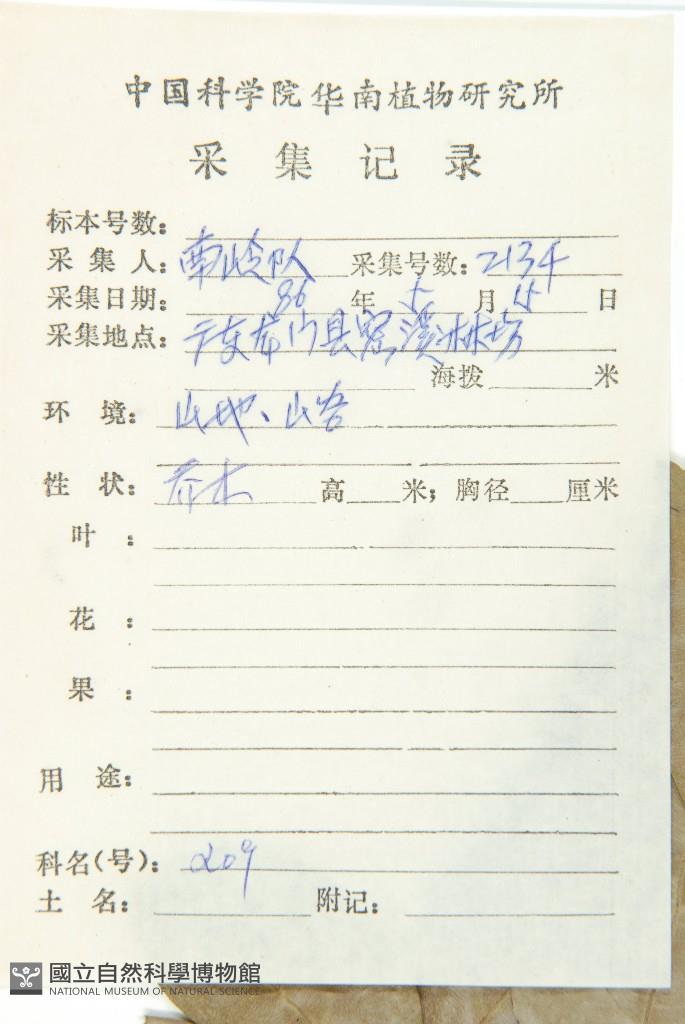 中国科学院华南植物研究所
采集记录
标本号数:
采集人: 南岭队 采集号数: 2134
采集日期: 86 年 5 月 15 日
采集地点: 广东龙门县密溪林场
海拨 米
环境: 山地、山谷
性状: 乔木 高 米; 胸径 厘米
叶:
花:
果:
用途:
科名(号): 209
土名: 附记:
國立自然科學博物館
NATIONAL MUSEUM OF NATURAL SCIENCE